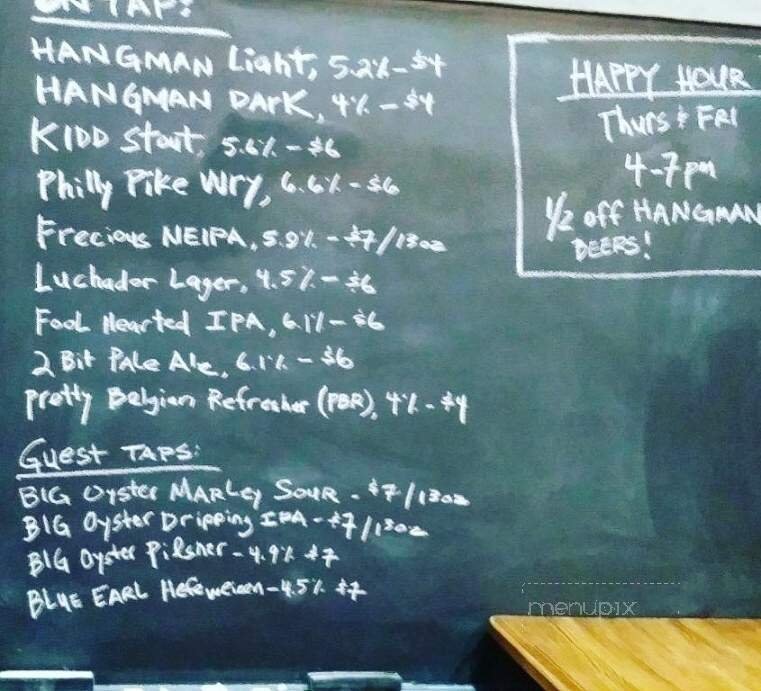 ON TAP:
HANGMAN Light, 5.2% - $4
HANGMAN DARK, 4% - $4
KIDD Stout, 5.6% - $6
Philly Pike Wry, 6.6% - $6
Frecious NEIPA, 5.9% - $7/13oz
Luchador Lager, 4.5% - $6
Fool Hearted IPA, 6.1% - $6
2 Bit Pale Ale, 6.1% - $6
Pretty Belgian Refresher (PBR), 4% - $4
Guest TAPS:
BIG Oyster MARLey SOUR - $7/13oz
BIG Oyster Dripping IPA - $7/13oz
BIG Oyster Pilsner - 4.9% $7
BLUE EARL Hefeweizen - 4.5% $7
HAPPY HOUR
Thurs & FRI
4-7pm
1/2 off HANGMAN
BEERS!
menupix